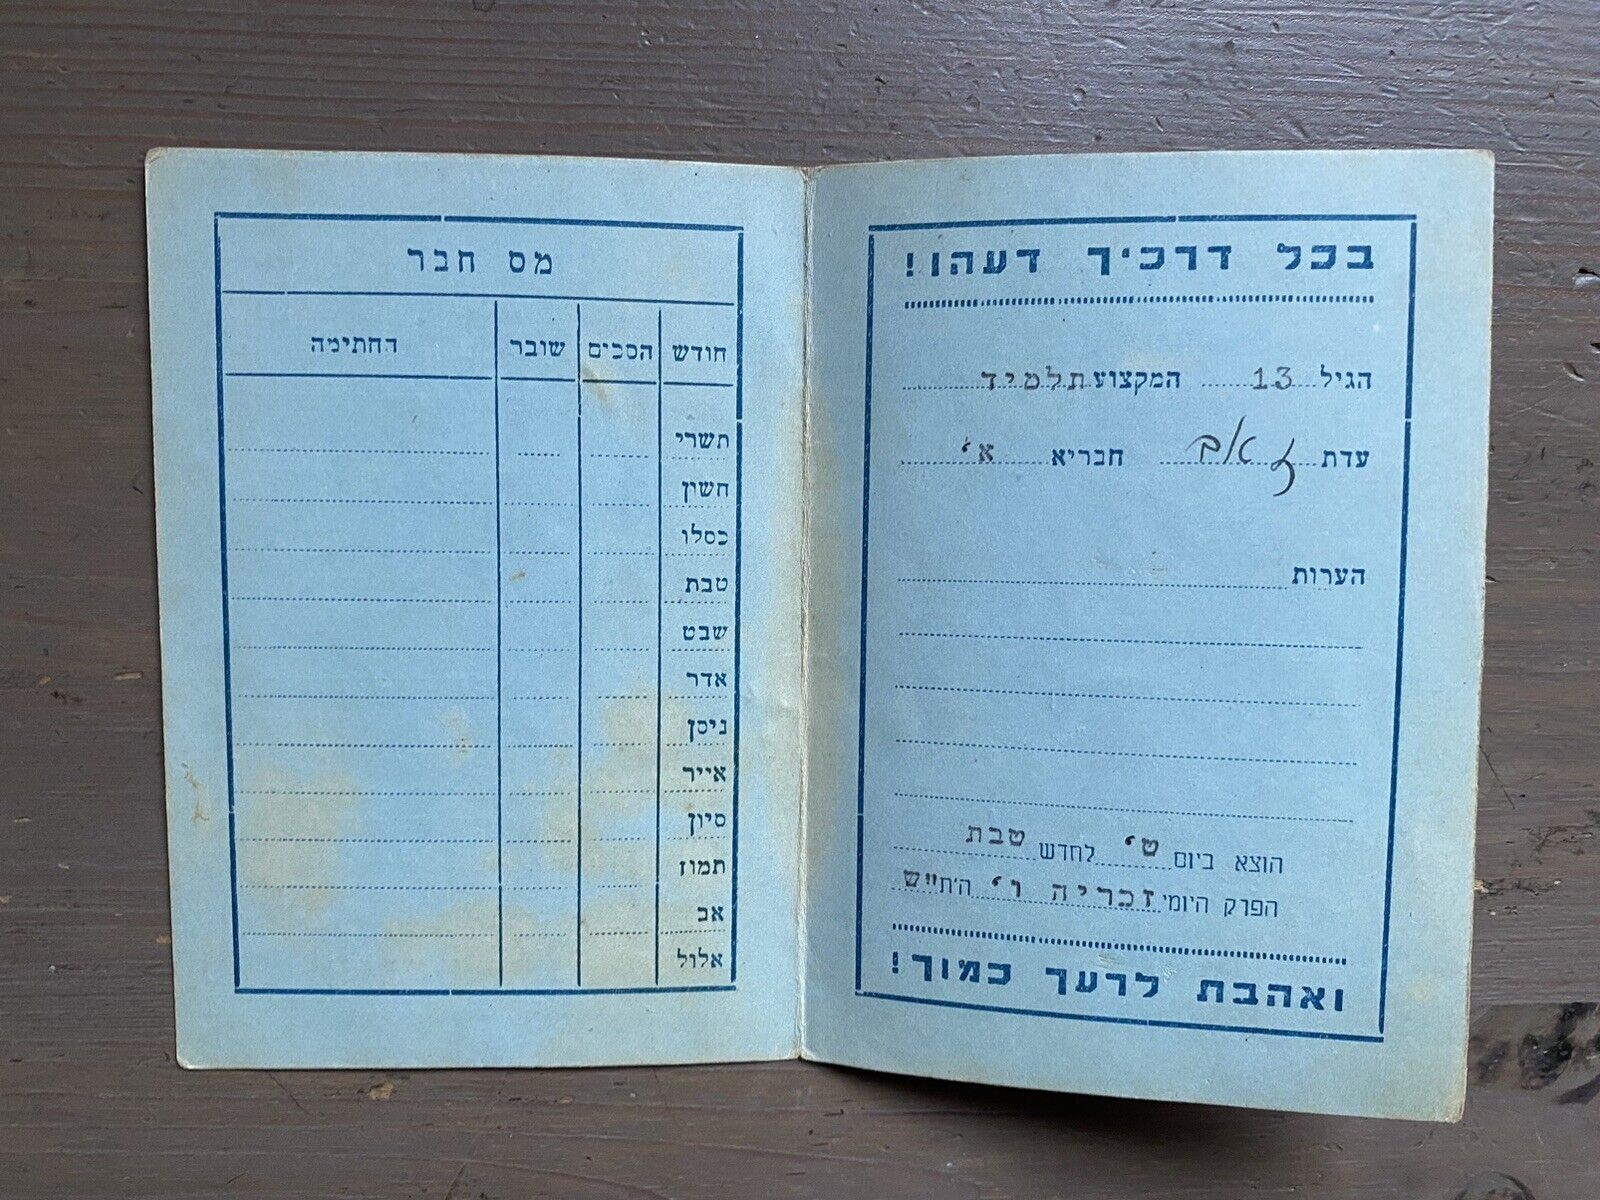 בכל דרכיך דעהו!
הגיל 13 המקצוע תלמיד
עדת זאב חבריא א'
הערות
הוצא ביום ט' לחדש טבת
הפרק היומי זכריה ו' ה'ת"ש
ואהבת לרעך כמוך!
מס חבר
חודש הסכים שובר החתימה
תשרי
חשון
כסלו
טבת
שבט
אדר
ניסן
אייר
סיון
תמוז
אב
אלול